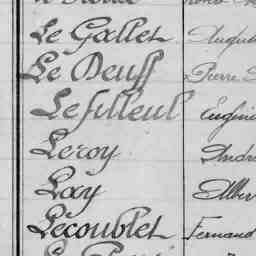 Le Gallet Augus
Le Deuff Pierre
Lefilleul Eugéni
Leroy André
Loxy Alber
Lécoublet Fernand